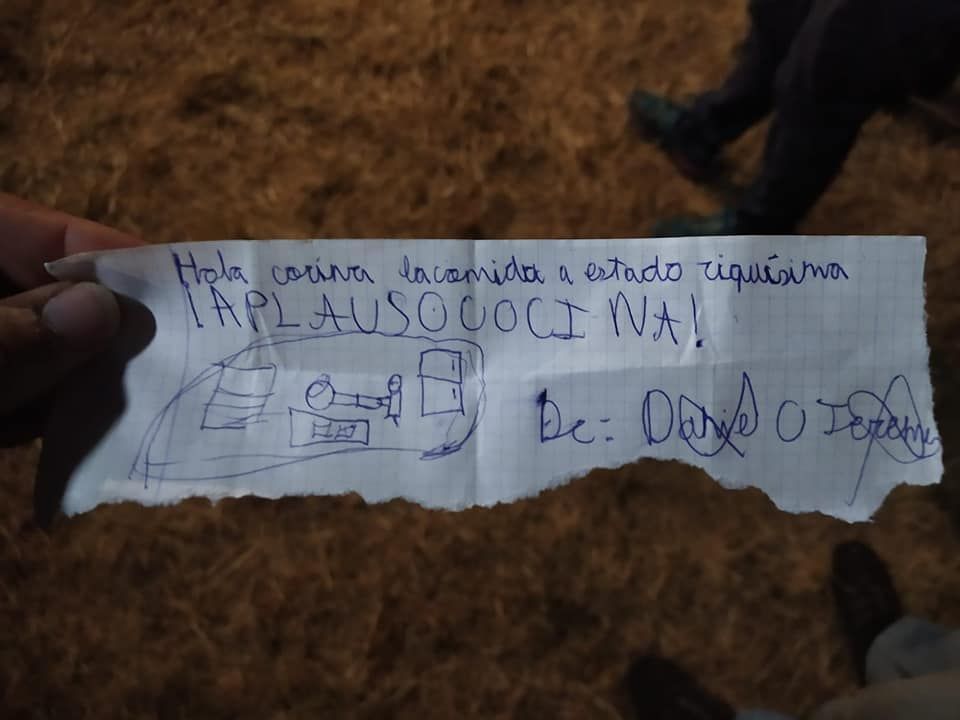 Hola corina lacomida a estado riquísima
¡APLAUSO COCINA!
De: Daniel O